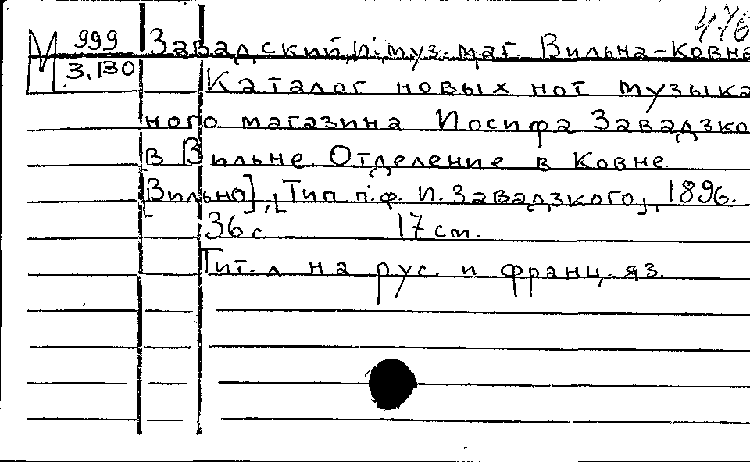 476
М 999 Завадский, И. муз. маг. Вильна-Ковна
3.130 Каталог новых нот музыка
ного магазина Иосифа Завадзко
в Вильне. Отделение в Ковне
[Вильна], [Тип п.ф. И. Завадзкого], 1896.
36 с 17 см.
Тит. л на рус. и франц. яз.